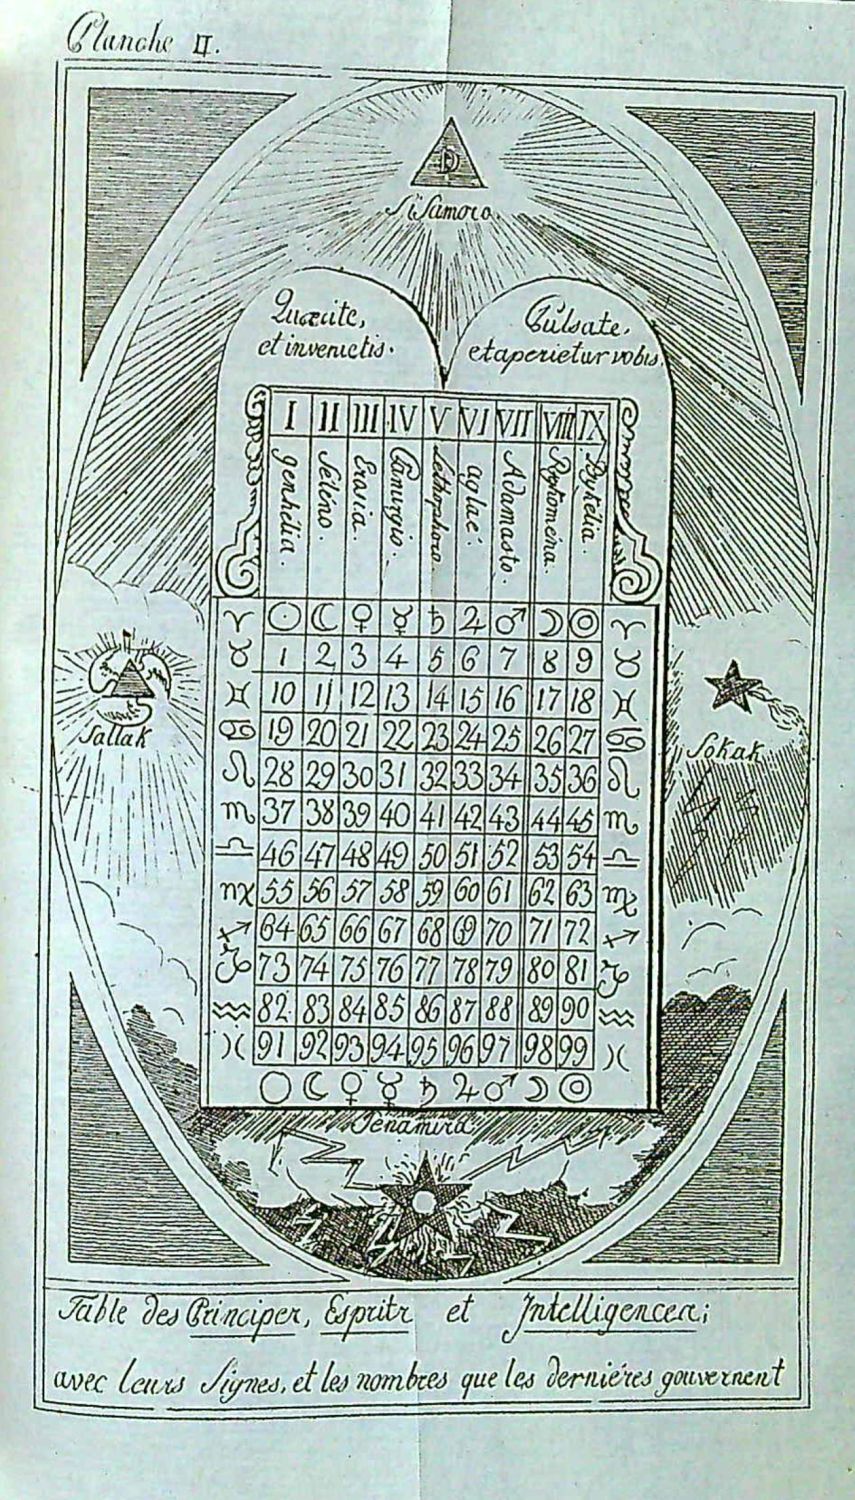 Planche II.
D
Sisamoro.
Quærite,
et invenietis.
Pulsate,
et aperietur vobis.
I II III IV V VI VII VIII IX
Genhelia.
Seléno.
Erosia.
Panurgio.
Lethophoro.
Aglaé.
Adamasto.
Psykelia.
♈ ☉ ☾ ♀ ☿ ♄ ♃ ♂ ☽ ◎ ♈
♉ 1 2 3 4 5 6 7 8 9 ♉
♊ 10 11 12 13 14 15 16 17 18 ♊
♋ 19 20 21 22 23 24 25 26 27 ♋
♌ 28 29 30 31 32 33 34 35 36 ♌
♏ 37 38 39 40 41 42 43 44 45 ♏
♎ 46 47 48 49 50 51 52 53 54 ♎
♍ 55 56 57 58 59 60 61 62 63 ♍
♐ 64 65 66 67 68 69 70 71 72 ♐
♑ 73 74 75 76 77 78 79 80 81 ♑
♒ 82 83 84 85 86 87 88 89 90 ♒
♓ 91 92 93 94 95 96 97 98 99 ♓
○ ☾ ♀ ☿ ♄ ♃ ♂ ☽ ◎
Sallak
Sokak
Senamira
Table des Principes, Esprits et Intelligences;
avec leurs Signes, et les nombres que les derniéres gouvernent